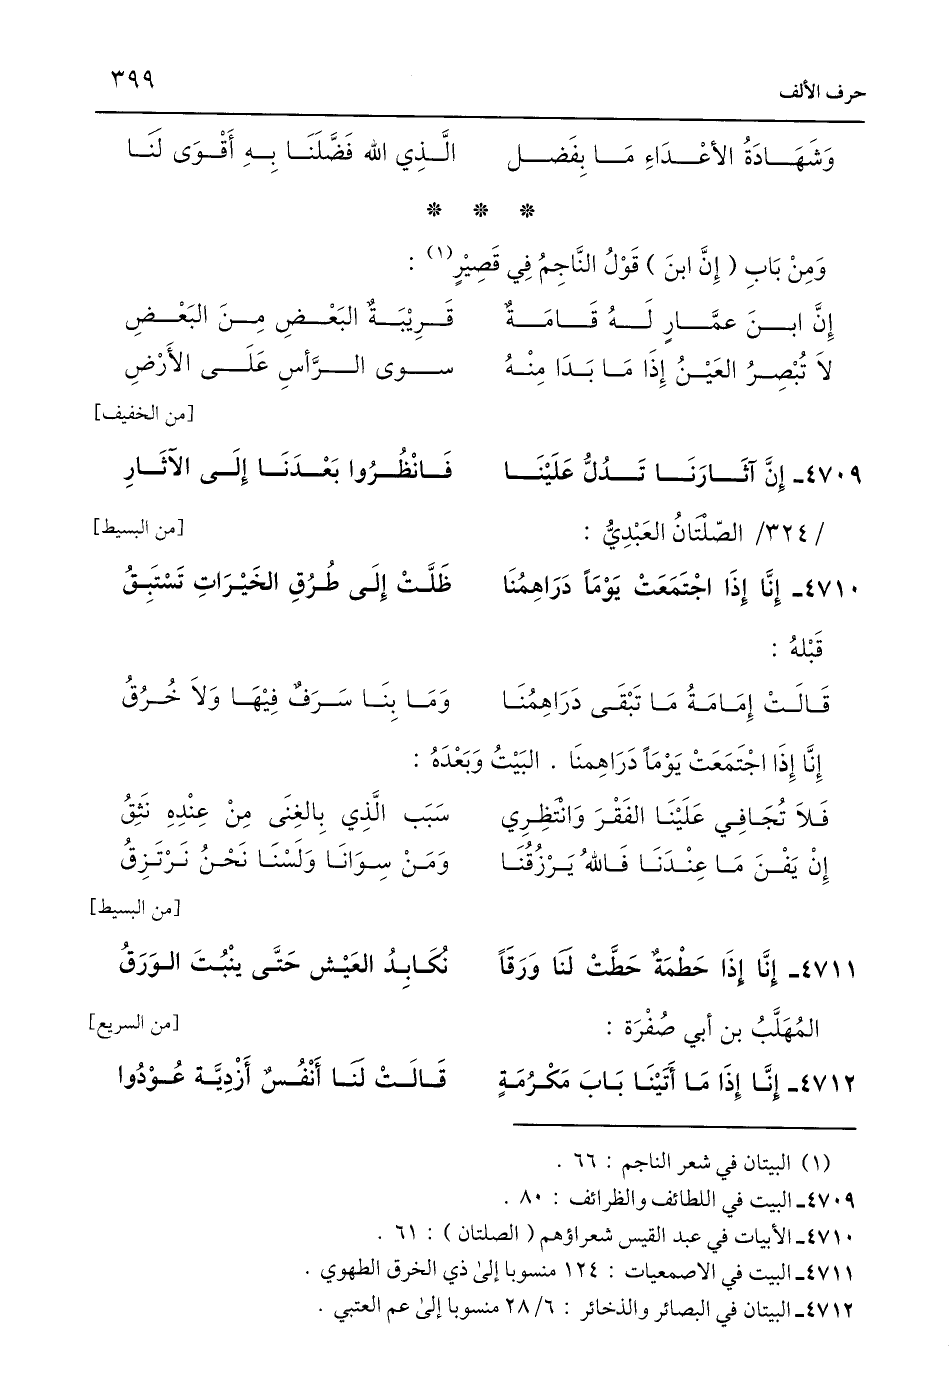 حرف الألف ٣٩٩
وَشَهَادَةُ الأَعْدَاءِ مَا بِفَضل الَّذِي الله فَضَّلَنَا بِهِ أَقْوَى لَنَا
* * *
وَمِنْ بَابِ ( إِنَّ ابنَ ) قَوْلُ النَّاجِمُ فِي قَصِيْرٍ(١) :
إِنَّ ابنَ عمَّارٍ لَهُ قَامَةٌ قَرِيْبَةٌ البَعْضِ مِنَ البَعْضِ
لاَ تُبْصِرُ العَيْنُ إِذَا مَا بَدَا مِنْهُ سوى الرَّأسِ عَلَى الأَرْضِ
[من الخفيف]
٤٧٠٩ـ إِنَّ آثَارَنَا تَدُلُّ عَلَيْنَا فَانْظُرُوا بَعْدَنَا إِلَى الآثَارِ
/٣٢٤/ الصّلْتَانُ العَبْدِيُّ : [من البسيط]
٤٧١٠ـ إِنَّا إِذَا اجْتَمَعَتْ يَوْمَاً دَرَاهِمُنَا ظَلَّتْ إِلَى طُرُقِ الخَيْرَاتِ تَسْتَبِقُ
قَبْلهُ :
قَالَتْ إِمَامَةُ مَا تَبْقَى دَرَاهِمُنَا وَمَا بِنَا سَرَفٌ فِيْهَا وَلاَ خُرُقُ
إِنَّا إِذَا اجْتَمَعَتْ يَوْمَاً دَرَاهِمنَا . البَيْتُ وَبَعْدَهُ :
فَلاَ تُجَافِي عَلَيْنَا الفَقْرَ وَانْتَظِرِي سَبَب الَّذِي بِالغِنَى مِنْ عِنْدِهِ نَثِقُ
إِنْ يَفْنَ مَا عِنْدَنَا فَاللهُ يَرْزُقُنَا وَمَنْ سِوَانَا وَلَسْنَا نَحْنُ نَرْتَزِقُ
[من البسيط]
٤٧١١ـ إِنَّا إِذَا حَطْمَةٌ حَطَّتْ لَنَا وَرَقَاً نُكَابِدُ العَيْش حَتَّى ينْبُتَ الوَرَقُ
المُهَلَّبُ بن أبي صُفْرَة : [من السريع]
٤٧١٢ـ إِنَّا إِذَا مَا أَتَيْنَا بَابَ مَكْرُمَةٍ قَالَتْ لَنَا أَنْفُسٌ أَزْدِيَّة عُوْدُوا
(١) البيتان في شعر الناجم : ٦٦ .
٤٧٠٩ـ البيت في اللطائف والظرائف : ٨٠ .
٤٧١٠ـ الأبيات في عبد القيس شعراؤهم ( الصلتان ) : ٦١ .
٤٧١١ـ البيت في الاصمعيات : ١٢٤ منسوبا إلىٰ ذي الخرق الطهوي .
٤٧١٢ـ البيتان في البصائر والذخائر : ٢٨/٦ منسوبا إلىٰ عم العتبي .